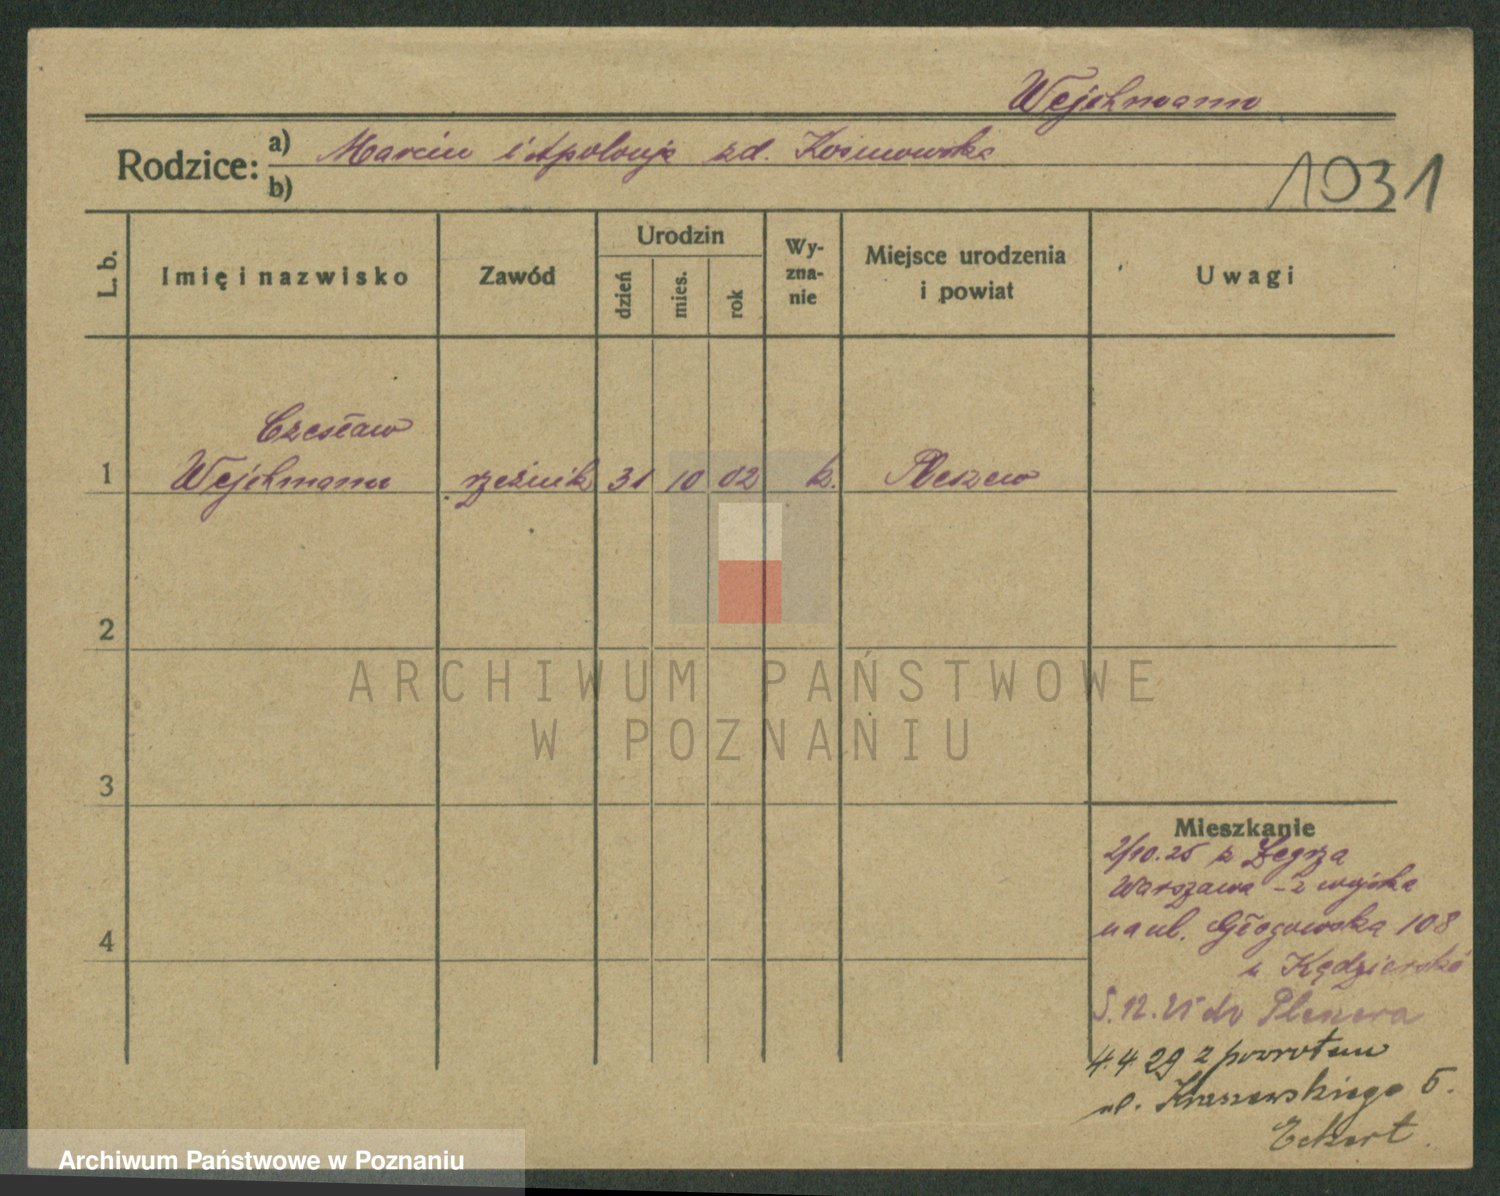 Wejchmann
Rodzice: a) Marcin i Apolonja zd. Kosmowska
b)
1031
L. b.
Imię i nazwisko
Zawód
Urodzin
dzień
mies.
rok
Wy-
zna-
nie
Miejsce urodzenia
i powiat
Uwagi
Czesław
1 Wejchmann rzeźnik 31 10 02 k. Pleszew
2
3
4
Mieszkanie
2/10.25 z Zegrza
Warszawa - z wojska
na ul. Głogowska 108
u Kędzierski
5.12.25 do Pleszewa
4.4 29 z powrotem
ul. Kraszewskiego 5.
Eckert.
ARCHIWUM PAŃSTWOWE
W POZNANIU
Archiwum Państwowe w Poznaniu